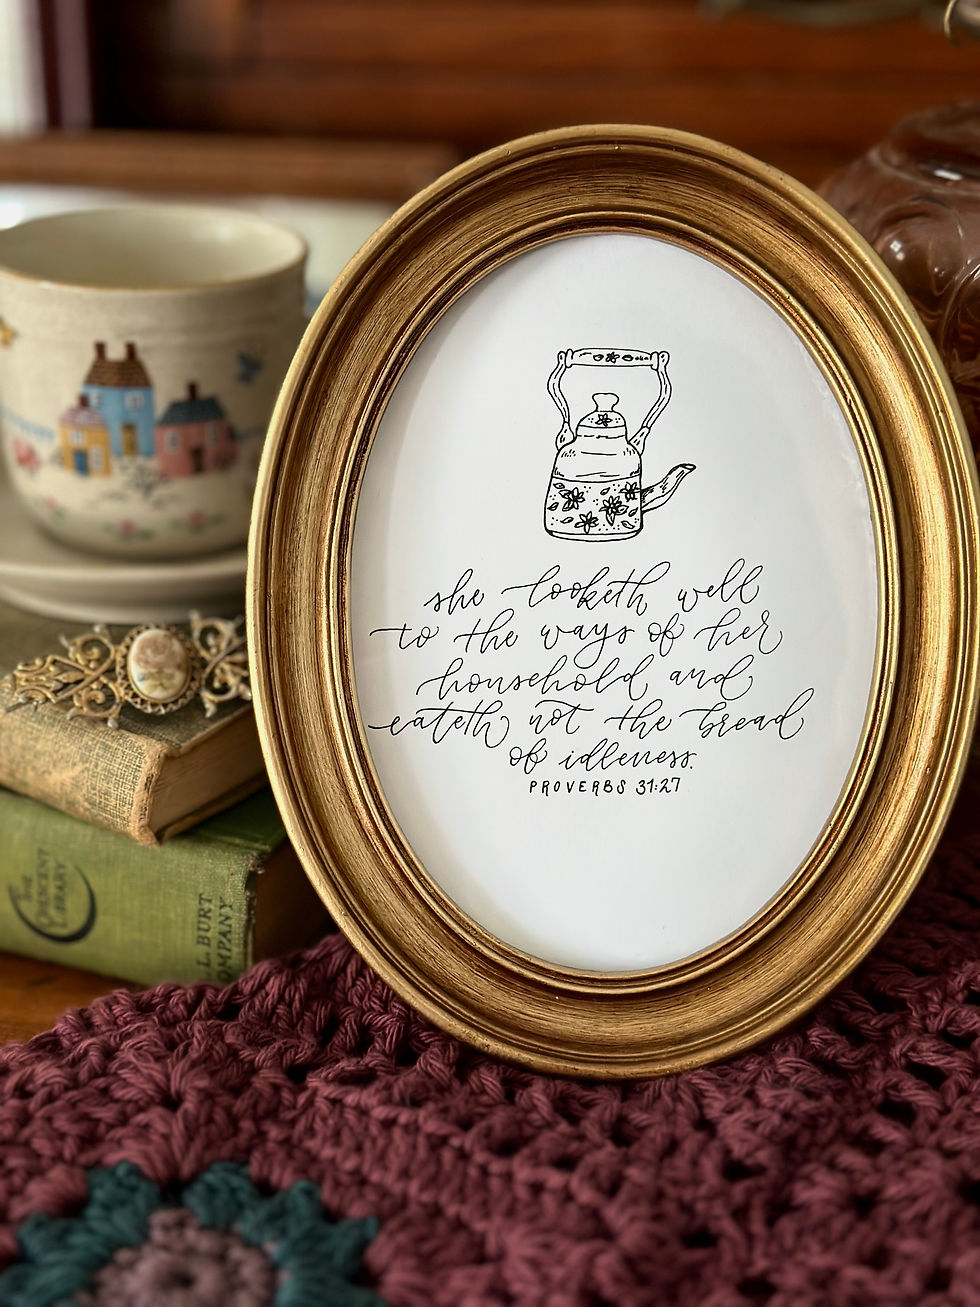 she looketh well
to the ways of her
household and
eateth not the bread
of idleness.
PROVERBS 31:27
THE
CRESCENT
LIBRARY
L. BURT
COMPANY